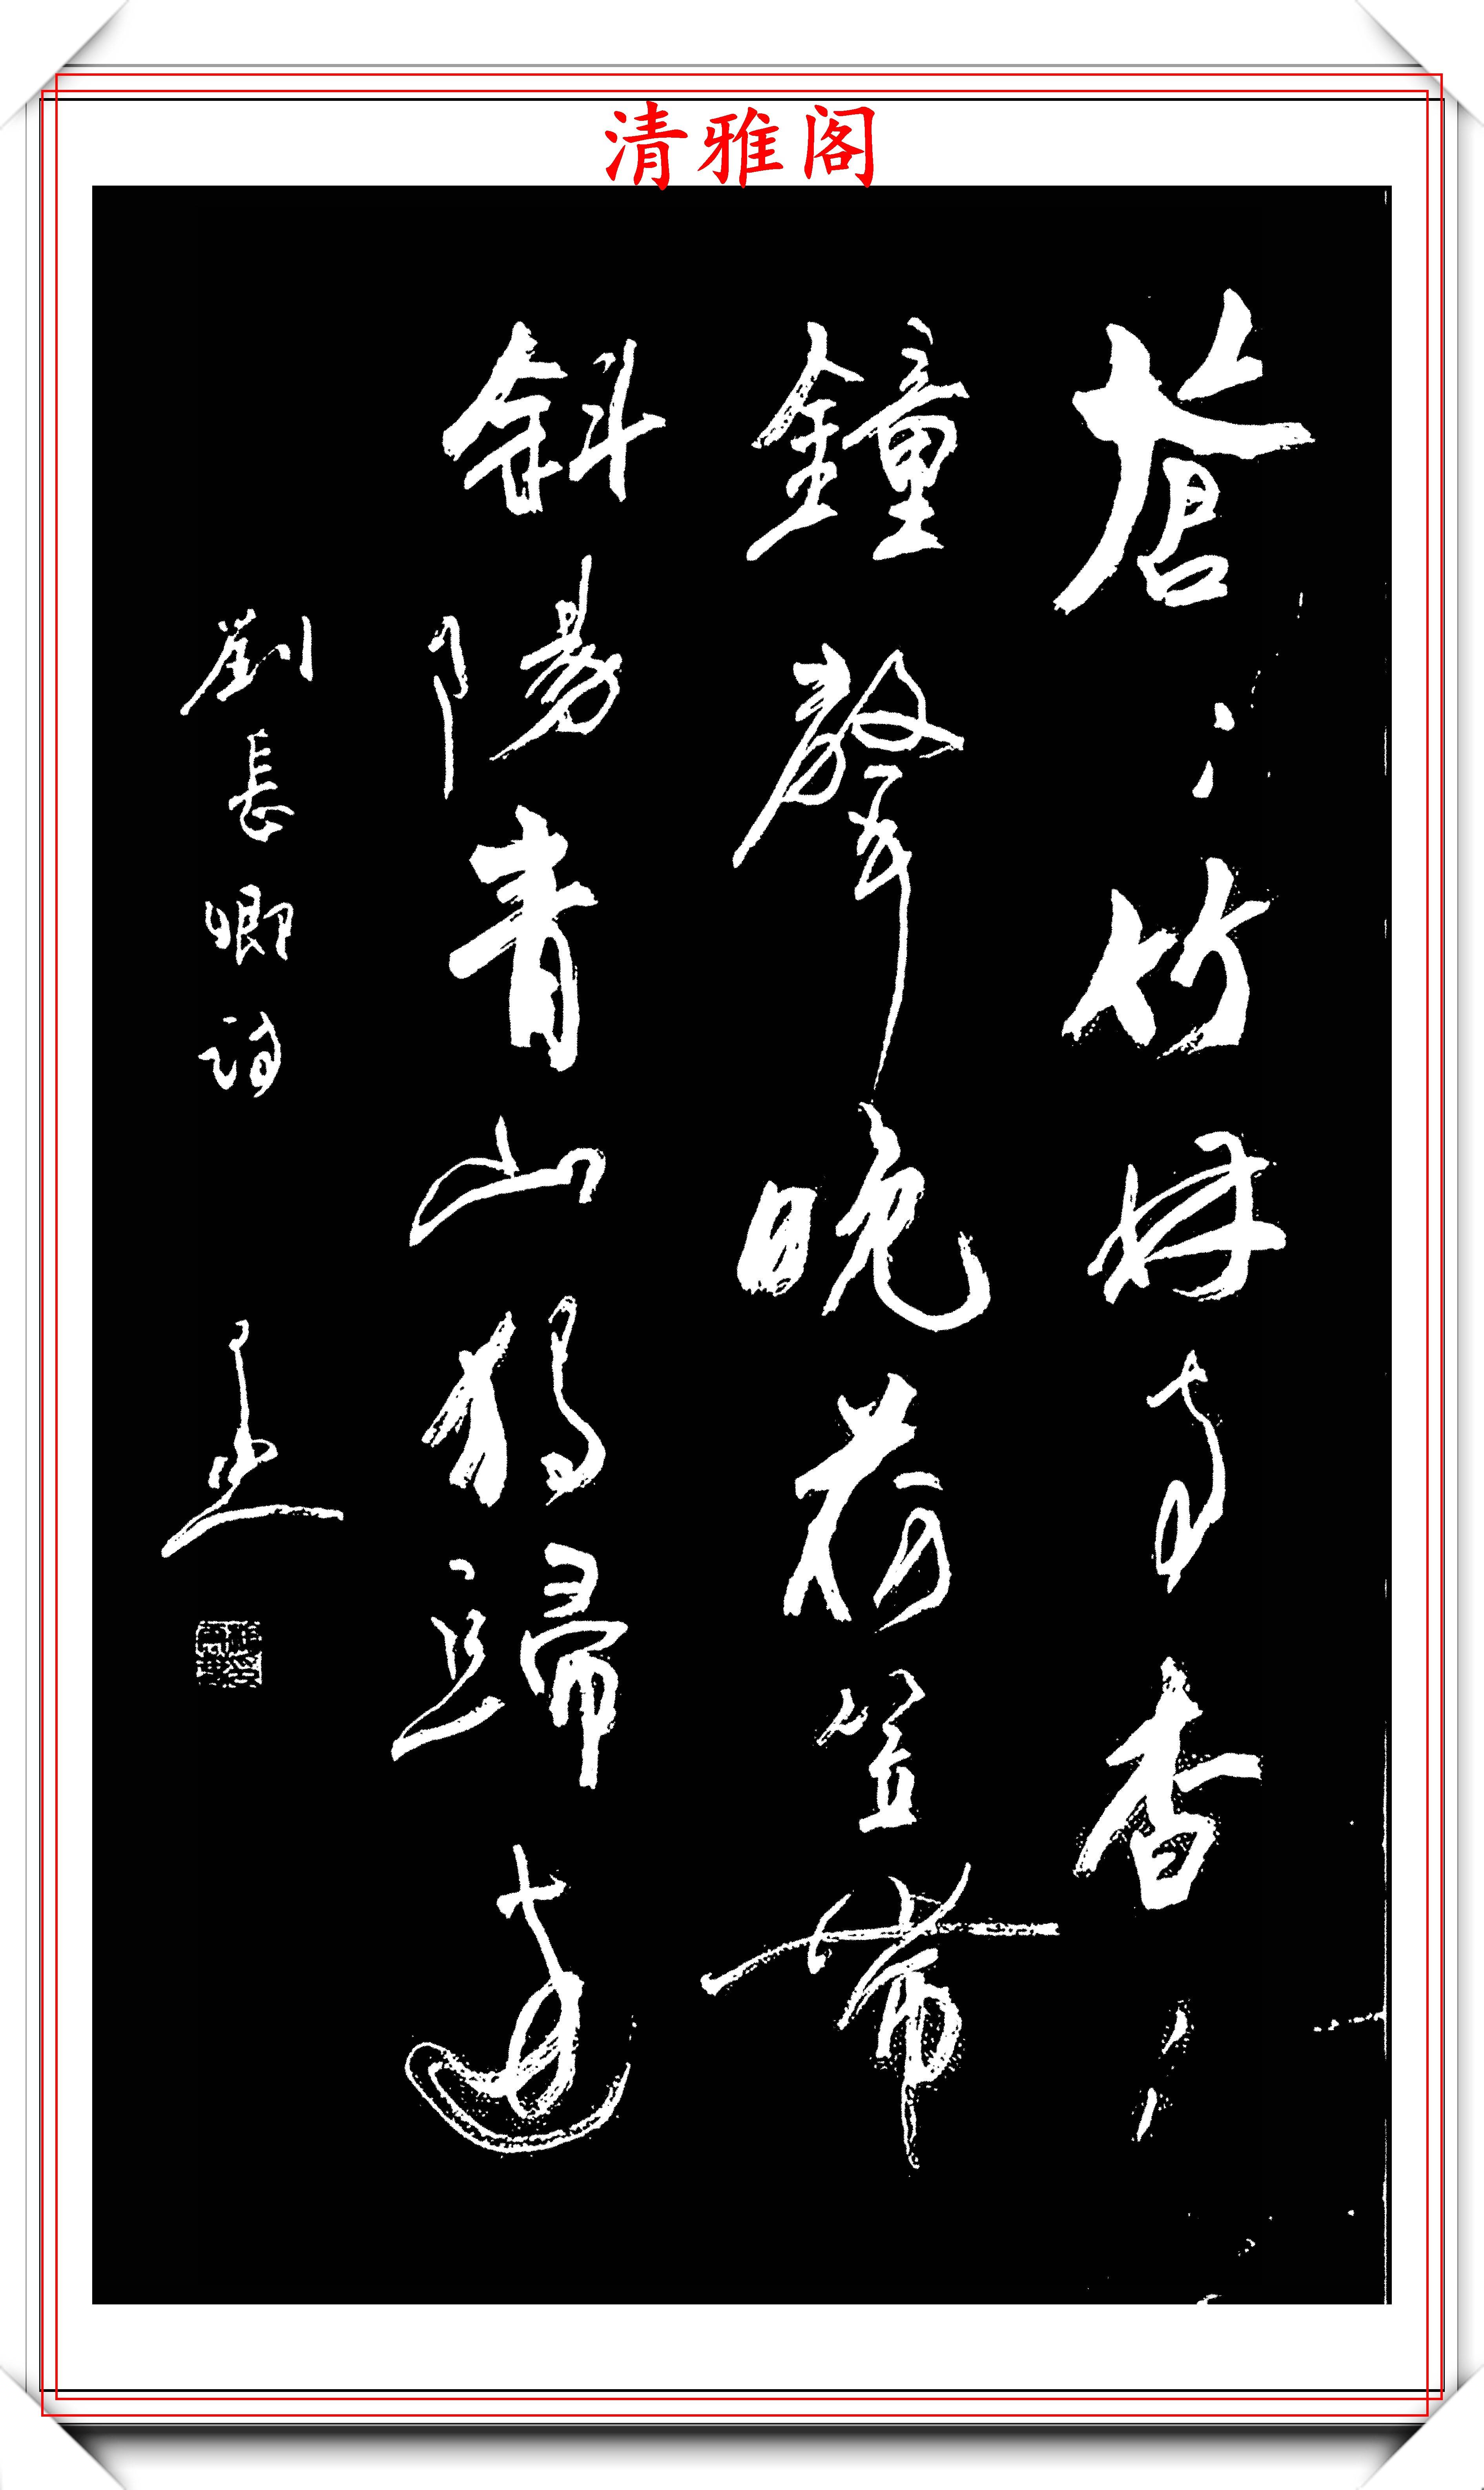 清雅阁
蒼〻竹林寺杳〻
鐘聲晚荷笠帶
斜陽青山獨歸遠
劉長卿詩